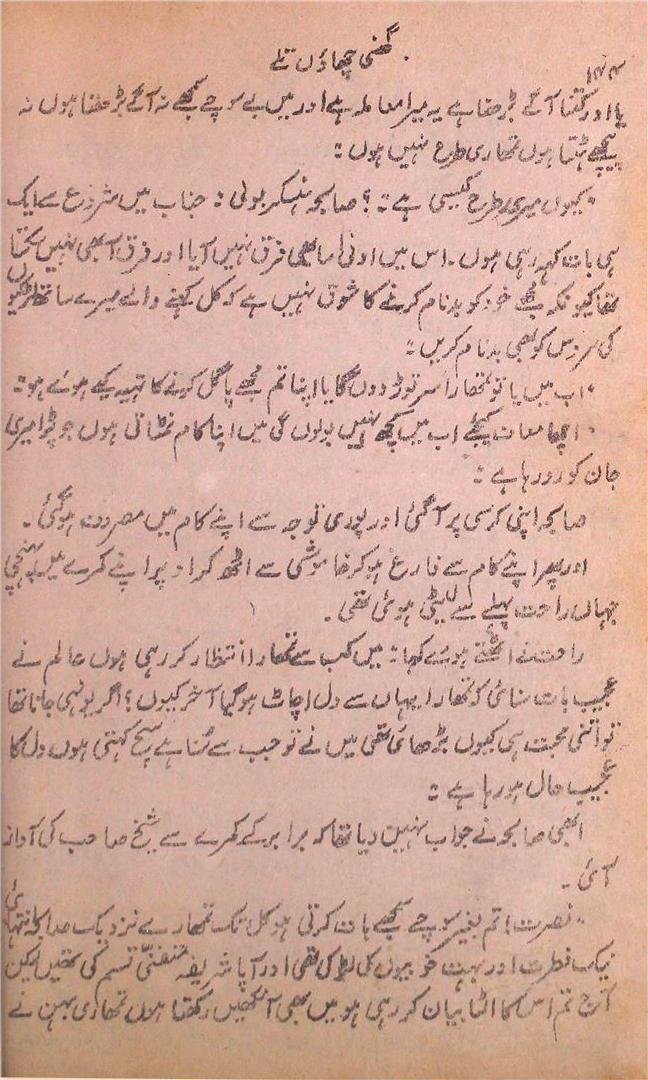 گھنی چھاؤں تلے
۱۴۴
یا اور کتنا آگے بڑھنا ہے یہ میرا معاملہ ہے اور میں بے سوچے سمجھے نہ آگے بڑھتا ہوں نہ
پیچھے ہٹتا ہوں تمھاری طرح نہیں ہوں :
" کیوں میری طرح کیسی ہے : ؟ صابحہ ہنسکر بولی : جناب میں شروع سے ایک
ہی بات کہہ رہی ہوں ۔ اس میں ادنیٰ سا بھی فرق نہیں آیا اور فرق آ بھی نہیں سکتا
تھا کیونکہ مجھے خود کو بدنام کرنے کا شوق نہیں ہے کہ کل کہنے والے میرے ساتھ لڑکیوں
کی سروس کو بھی بدنام کریں :
" اب میں یا تو تمھارا سر توڑ دوں گا یا اپنا تم مجھے پاگل کرنے کا تہیہ کیے ہوئے ہو :
" اچھا معاف کیجئے اب میں کچھ نہیں بولوں گی میں اپنا کام نمٹاتی ہوں جو پڑا میری
جان کو رو رہا ہے :
صابحہ اپنی کرسی پر آ گئی اور پوری توجہ سے اپنے کام میں مصروف ہو گئی ۔
اور پھر اپنے کام سے فارغ ہو کر خاموشی سے اٹھ کر اوپر اپنے کمرے میں پہنچی
جہاں راحت پہلے سے لیٹی ہوئی تھی ۔
راحت نے اٹھتے ہوئے کہا : میں کب سے تمھارا انتظار کر رہی ہوں عالم نے
عجیب بات سنائی کہ تمھارا یہاں سے دل اچاٹ ہو گیا آخر کیوں ؟ اگر یونہی جانا تھا
تو اتنی محبت ہی کیوں بڑھائی تھی میں نے تو جب سے سُنا ہے سچ کہتی ہوں دل کا
عجیب حال ہو رہا ہے :
ابھی صابحہ نے جواب نہیں دیا تھا کہ برابر کے کمرے سے شیخ صاحب کی آواز
آئی ۔
" نصرت ! تم بغیر سوچے سمجھے بات کرتی ہو کل تک تمھارے نزدیک صابحہ انتہائی
نیک فطرت اور بہت خوبیوں کی لڑکی تھی اور آپا شریفہ متفنّی قسم کی تھیں لیکن
آج تم اس کا الٹا بیان کر رہی ہو میں بھی آنکھیں رکھتا ہوں تمھاری بہن نے